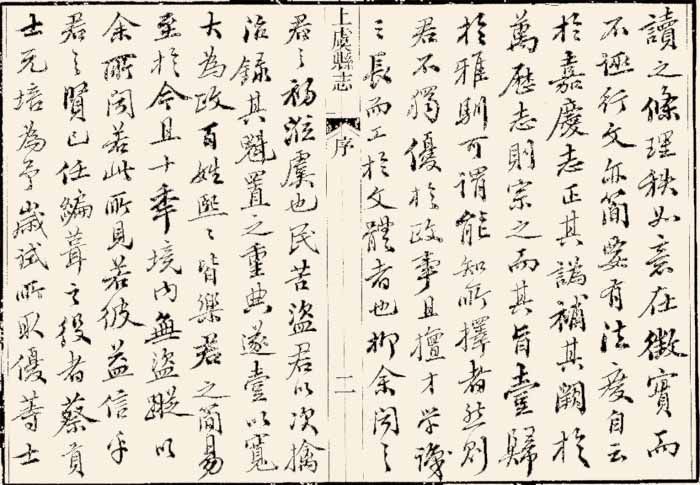 讀之條理秩如意在徵實而
不誣行文亦簡要有法爰自云
於嘉慶志正其譌補其闕於
萬歷志則宗之而其旨壹歸
於雅馴可謂能知所擇者然則
君不獨優於政事且擅才學識
之長而工於文體者也抑余聞之
上虞縣志
序
二
君之初涖虞也民苦盜君以次擒
治錄其魁置之重典遂壹以寬
大為政百姓熙〻皆樂君之簡易
至於今且十年境內無盜蹤以
余所聞若此所見若彼益信乎
君之賢已任編葺之役者蔡貢
士元培為予歲試所取優等士